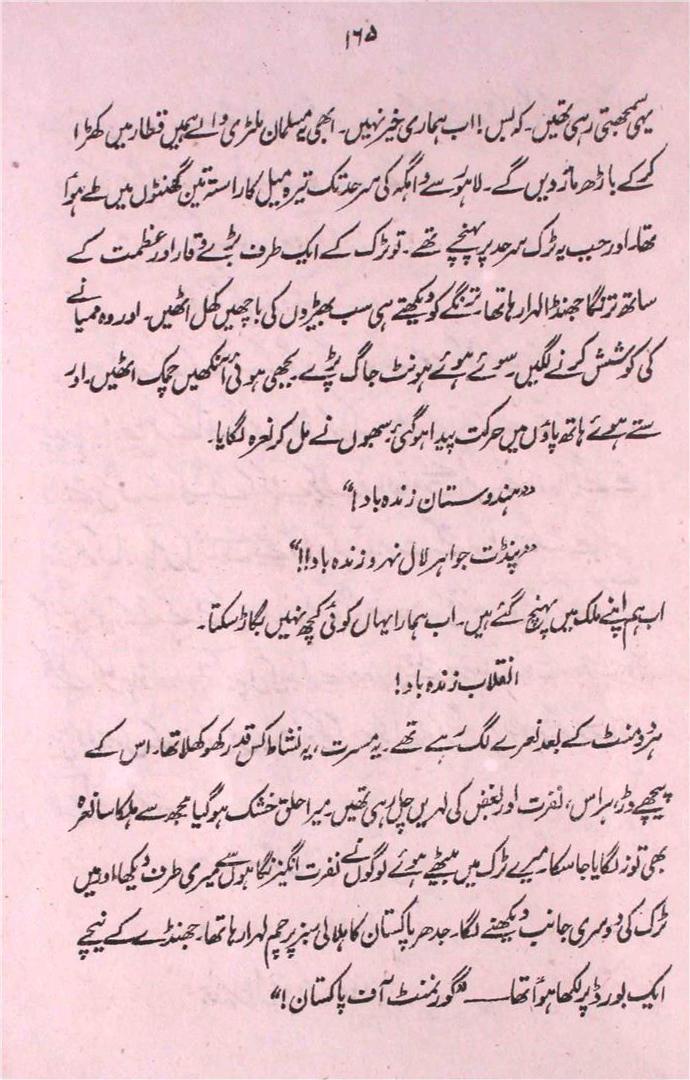 ۱۶۵
یہی سمجھتی رہی تھیں۔ کہ بس! اب ہماری خیر نہیں۔ ابھی یہ مسلمان ملٹری والے ہمیں قطار میں کھڑا
کر کے باڑھ مار دیں گے۔ لاہور سے واہگہ کی سرحد تک تیرہ میل کا راستہ تین گھنٹوں میں طے ہوا
تھا۔ اور جب یہ ٹرک سرحد پر پہنچے تھے۔ تو ٹرک کے ایک طرف بڑے وقار اور عظمت کے
ساتھ ترنگا جھنڈا لہرا رہا تھا۔ ترنگے کو دیکھتے ہی سب بھیڑوں کی باچھیں کھل اٹھیں۔ اور وہ ممیانے
کی کوشش کرنے لگیں۔ سوئے ہوئے ہونٹ جاگ پڑے۔ بجھی ہوئی آنکھیں چمک اٹھیں۔ اور
ستے ہوئے ہاتھ پاؤں میں حرکت پیدا ہو گئی۔ سبھوں نے مل کر نعرہ لگایا۔
"ہندوستان زندہ باد!"
"پنڈت جواہر لال نہرو زندہ باد!!"
اب ہم اپنے ملک میں پہنچ گئے ہیں۔ اب ہمارا یہاں کوئی کچھ نہیں بگاڑ سکتا۔
انقلاب زندہ باد!
ہر دو منٹ کے بعد نعرے لگ رہے تھے۔ یہ مسرت، یہ نشاط کس قدر کھوکھلا تھا۔ اس کے
پیچھے ڈر، ہراس، نفرت اور بغض کی لہریں چل رہی تھیں۔ میرا حلق خشک ہو گیا مجھ سے ہلکا سا نعرہ
بھی تو نہ لگایا جا سکا۔ میرے ٹرک میں بیٹھے ہوئے لوگوں نے نفرت انگیز نگاہوں سے میری طرف دیکھا اور میں
ٹرک کی دوسری جانب دیکھنے لگا۔ جدھر پاکستان کا ہلالی سبز پرچم لہرا رہا تھا۔ جھنڈے کے نیچے
ایک بورڈ پر لکھا ہوا تھا —— "گورنمنٹ آف پاکستان!"